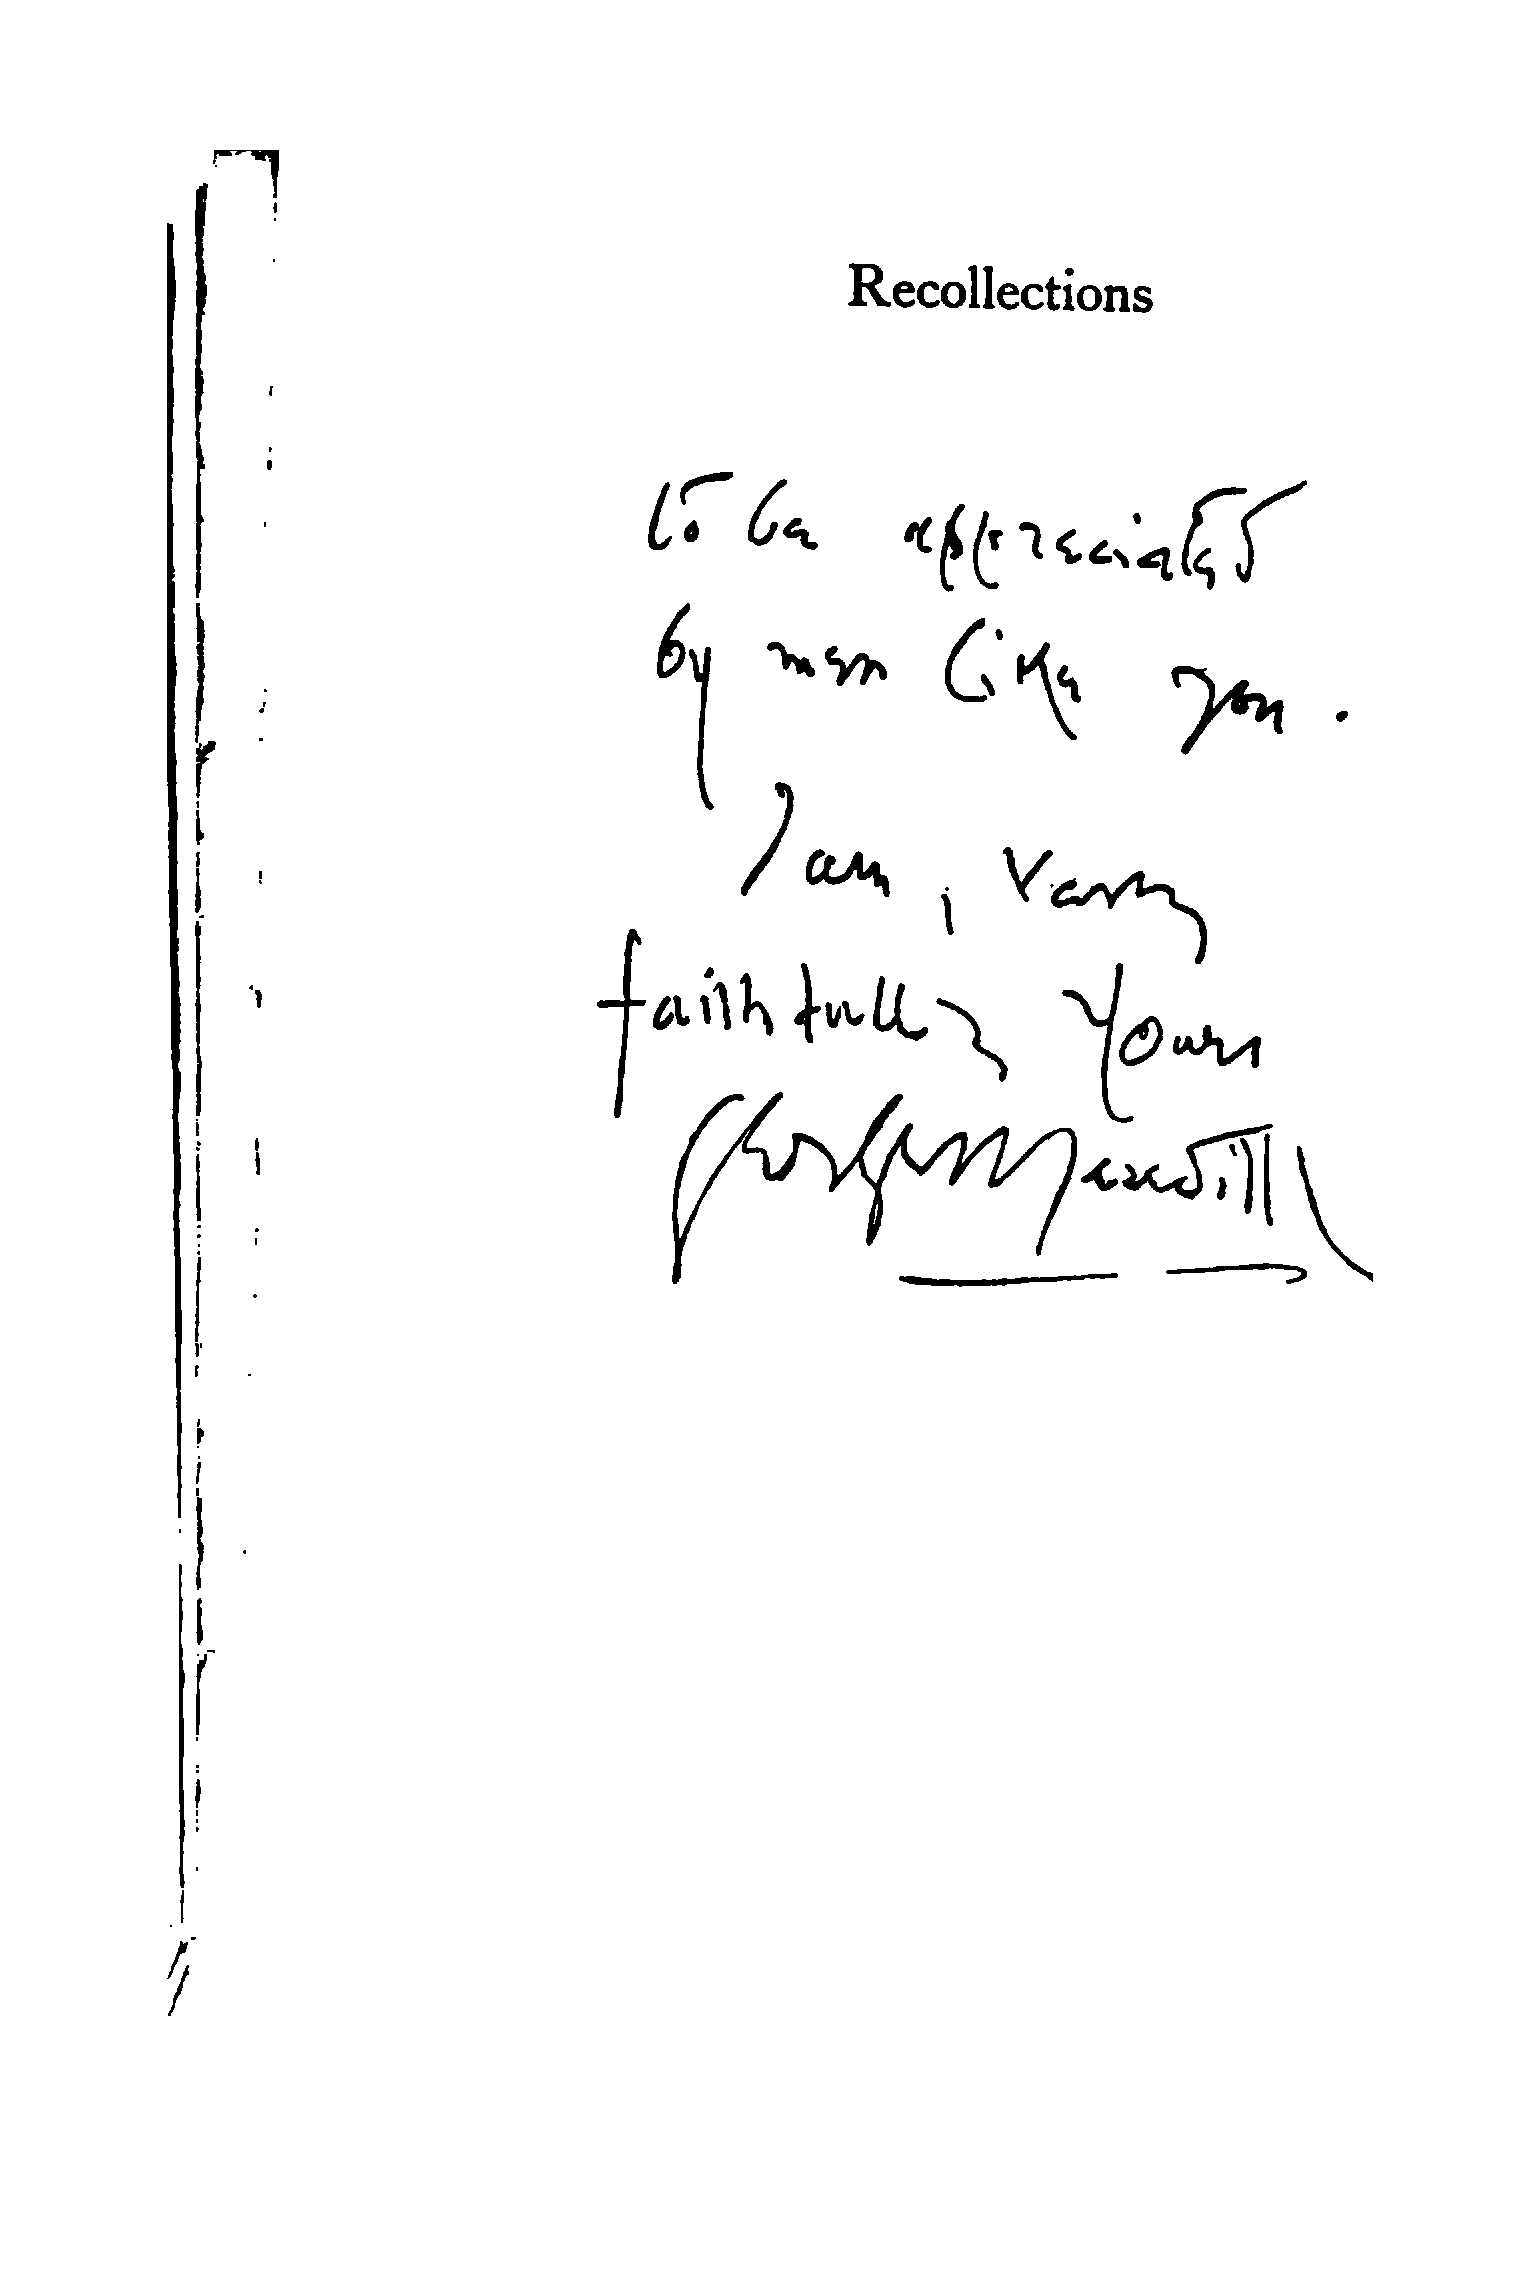 Recollections
to be appreciated
by men like you.
I am, very
faithfully yours
George Meredith